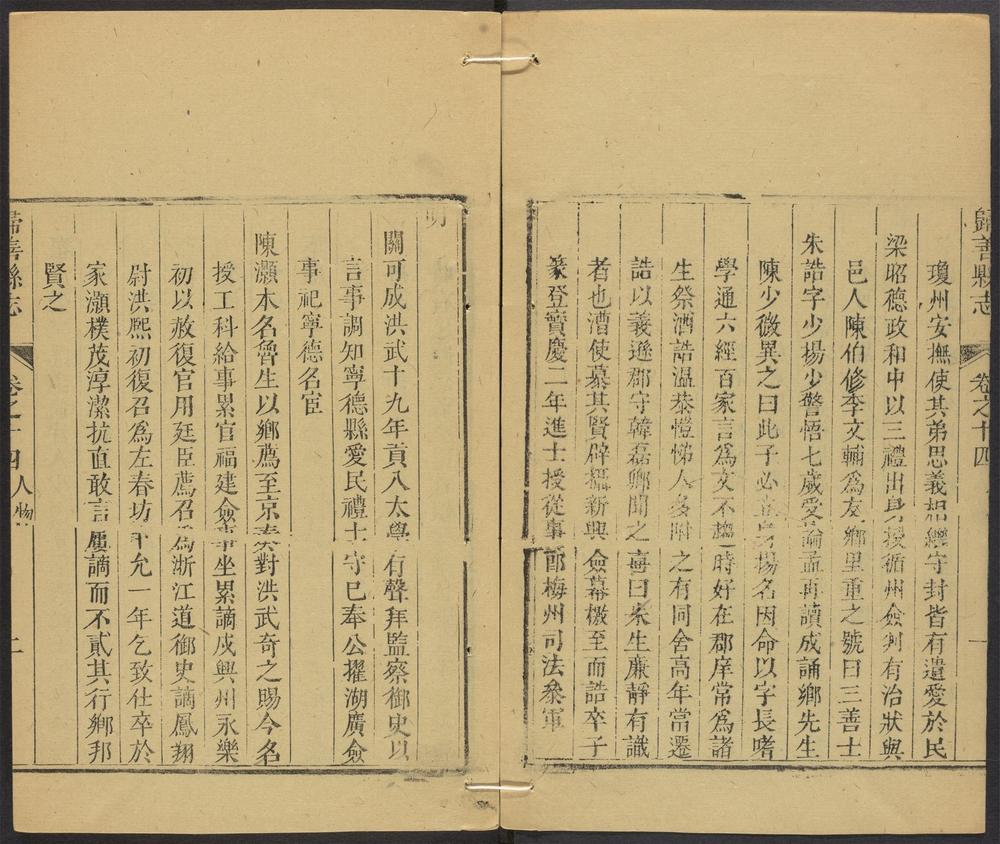 歸善縣志
卷之十四
一
瓊州安撫使其弟思義組經守封皆有遺愛於民
梁昭德政和中以三禮出身授循州僉判有治狀與
邑人陳伯修李文輔爲友鄉里重之號曰三善士
朱誥字少揚少警悟七歲受論孟再讀成誦鄉先生
陳少微異之曰此子必立身揚名因命以字長嗜
學通六經百家言爲文不趨時好在郡庠常爲諸
生祭酒誥溫恭愷悌人多附之有同舍高年當遷
誥以義遜郡守韓磊卿聞之每曰朱生廉靜有識
者也漕使慕其賢辟攝新興僉幕檄至而誥卒子
篆登寶慶二年進士授從事郎梅州司法叅軍
明
關可成洪武十九年貢入太學有聲拜監察御史以
言事調知寧德縣愛民禮士守己奉公擢湖廣僉
事祀寧德名宦
陳灝本名魯生以鄉薦至京奏對洪武奇之賜今名
授工科給事累官福建僉事坐累謫戍興州永樂
初以赦復官用廷臣薦召爲浙江道御史謫鳳翔
尉洪熙初復召爲左春坊中允一年乞致仕卒於
家灝樸茂淳潔抗直敢言屢謫而不貳其行鄉邦
賢之
歸善縣志
卷之十四
人物
二